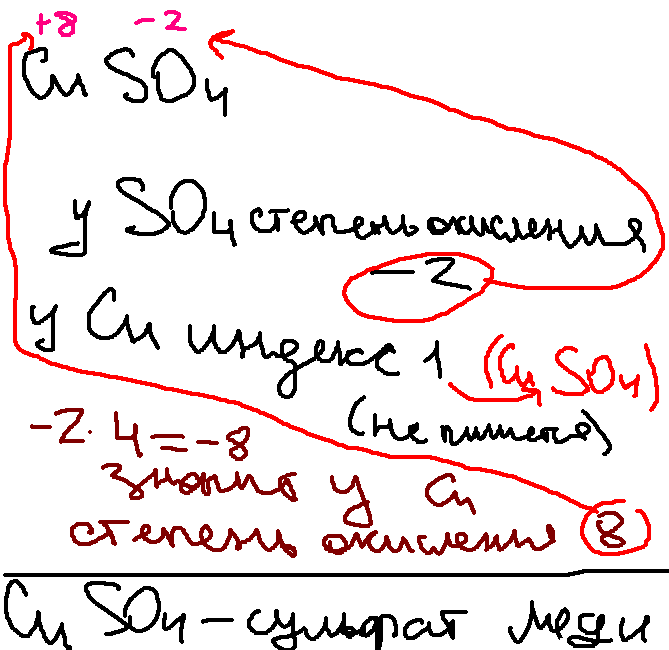 +8 -2
Cu SO4
у SO4 степень окисления
-2
у Cu индекс 1 (Cu SO4)
(не пишется)
-2·4=-8
значит у Cu
степень окисления 8
Cu SO4 - сульфат меди